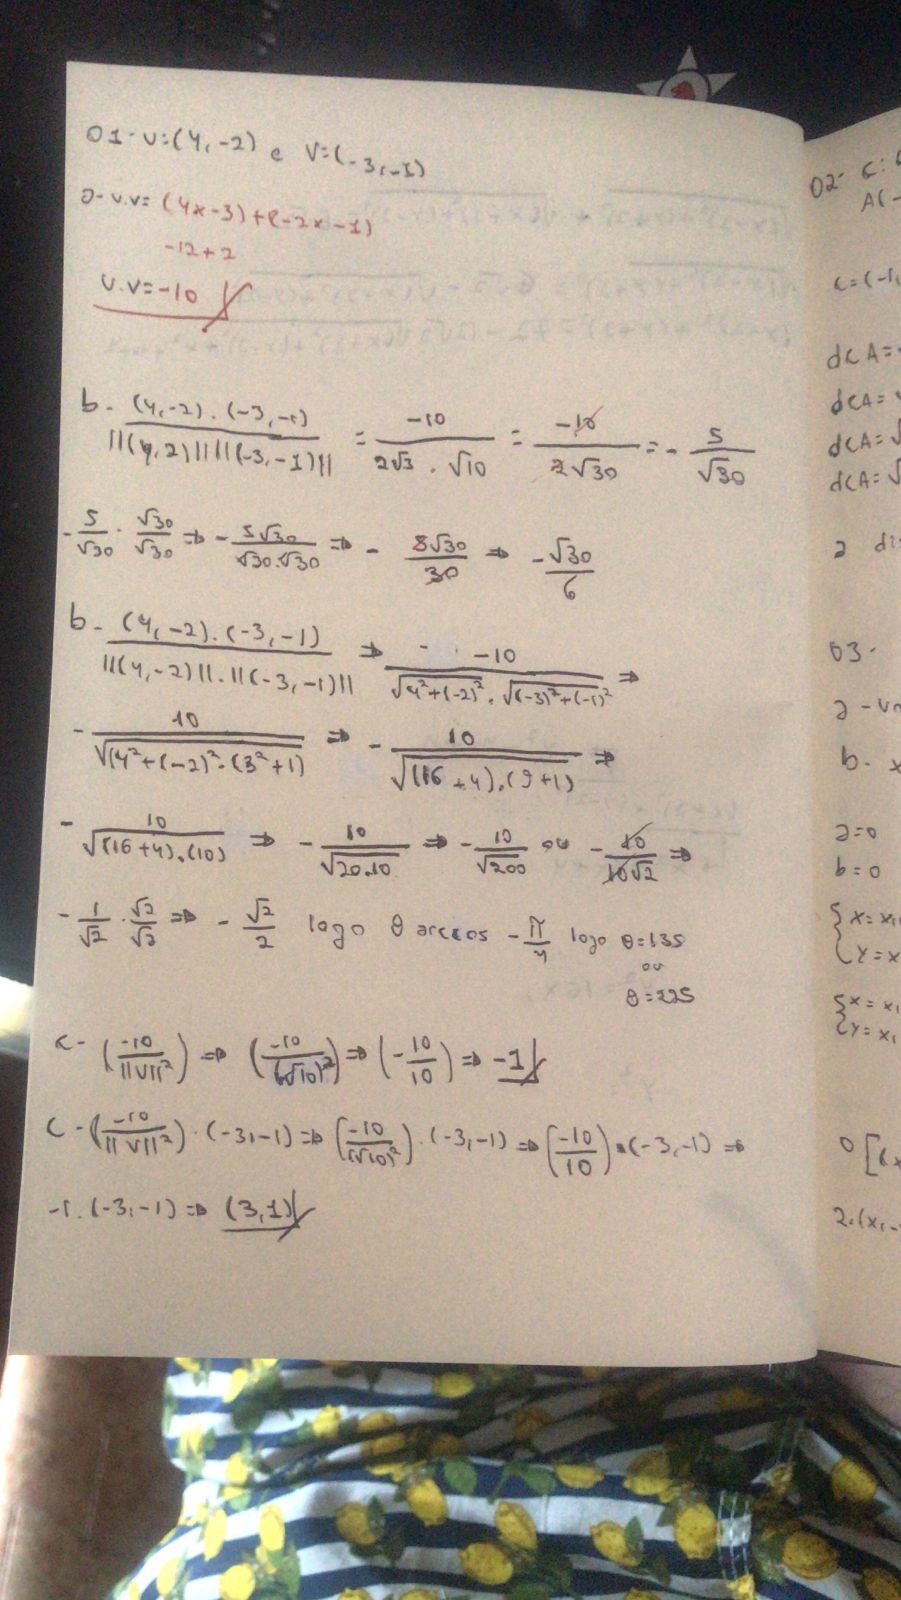 01- u=(4,-2) e V=(-3,-1)
a- u.v= (4x-3)+(-2x-1)
-12+2
u.v=-10
b- (4,-2).(-3,-1) / ||(4,2)|| ||(-3,-1)|| = -10 / 2√3 . √10 = -10 / 2√30 = - 5 / √30
- 5/√30 . √30/√30 ⇒ - 5√30 / √30.√30 ⇒ - 5√30 / 30 ⇒ - √30 / 6
b- (4,-2).(-3,-1) / ||(4,-2)||.||(-3,-1)|| ⇒ -10 / √4²+(-2)² . √(-3)²+(-1)² ⇒
- 10 / √(4²+(-2)².(3²+1) ⇒ - 10 / √(16+4).(9+1) ⇒
- 10 / √(16+4).(10) ⇒ - 10 / √20.10 ⇒ - 10 / √200 ou - 10 / 10√2 ⇒
- 1/√2 . √2/√2 ⇒ - √2 / 2 logo θ arccos - π/4 logo θ=135
ou
θ=225
c- (-10 / ||V||²) ⇒ (-10 / (√10)²) ⇒ (-10/10) ⇒ -1
c- (-10 / ||V||²).(-3,-1) ⇒ (-10 / (√10)²).(-3,-1) ⇒ (-10/10).(-3,-1) ⇒
-1.(-3,-1) ⇒ (3,1)
02- c:
A(-
c=(-1,
dcA=
dcA=
dcA=√
dcA=√
a di
03-
a-
b- x
a=0
b=0
{x=x₁
{y=x
{x=x₁
{y=x₁
0[(x
2.(x,-